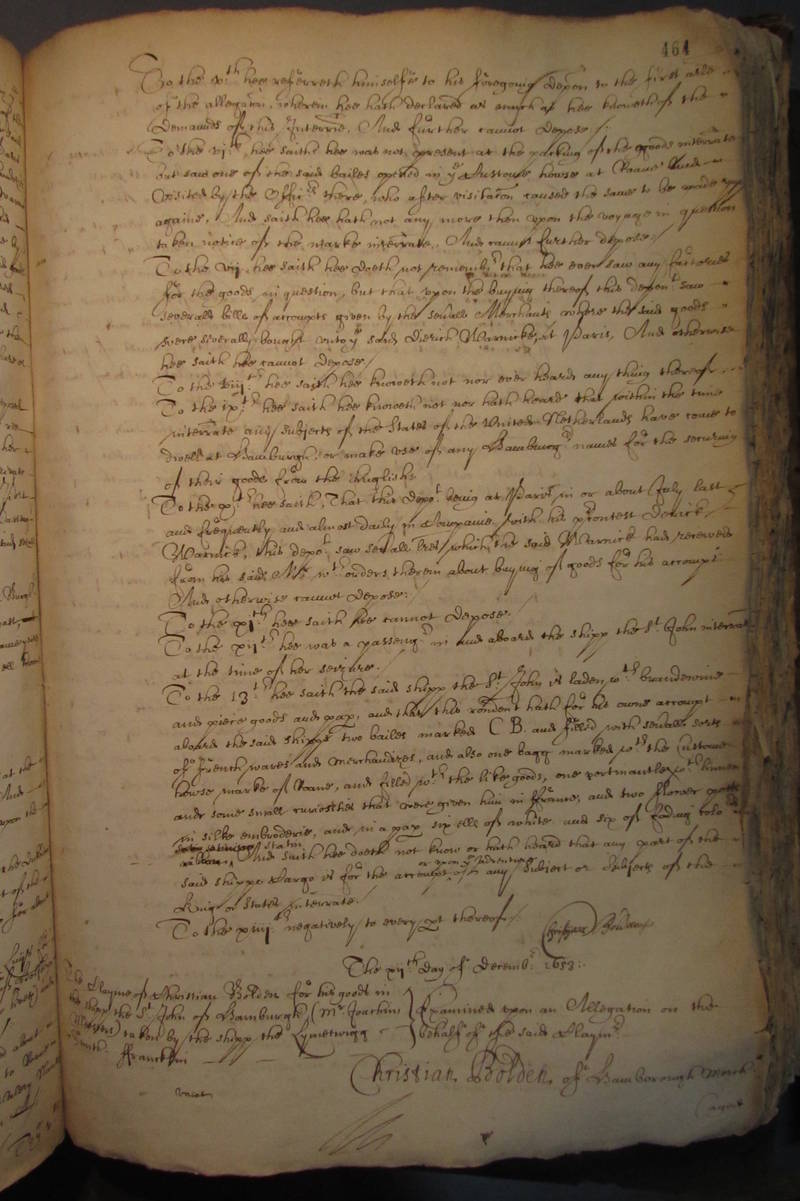 464
To the v:th hee referreth himselfe to his foregoeing depon to the first arle
of the allegacon, wherein hee hath declared as much as hee knoweth of the
Demaundes of this Interrie, And further cannot depose /.
To the vj:th hee saith hee was not present at the packing of the goods interrate
but saw one of the said bailes opened in ye Custome howse at Roane and
visited by the Officrs there, who after visitacon caused the same to be made upp
againe, And saith hee hath not any more then upon the voyage in question
taken notice of the marke interrate, And cannot further depose /
To the vij. hee saith hee doeth not remember that hee ever saw any factories
for the goods in question, but that upon the buying thereof this depont saw
severall bills of accompts given by the severall Merchants where the said goods
were severally bought unto ye said Dierick Warnicke, at Paris, And otherwise
hee saith hee cannot depose /
To the viij:th hee saith hee knoweth not nor ever heard any thing thereof
To the ix:th hee saith hee knoweth not nor hath heard that within the time
interrate any subjects of the States of the United Netherlands have come to
dwell at Hamburgh, or make use of any Hamburg names for the securing
of their goods from the English.
To the x:th hee saith, That this depot being at Paris in or about July last
and frequently and almost daily in Companie with his Dierick
Warnick, this depot saw severall lres which the said Warnick had received
from his said Mr wth orders therein about buying of goods for his accompt
And otherwise cannot depose:/
To the xj:th hee saith hee cannot depose./
To the xij:th hee was a passenger in and aboard the shipp the St John interrate
at the time of her seizure./
To the 13th hee saith the said shipp the St John is laden wth brandewine
and piece goods and pap, and that this rendent hath for his owne accompt
aboard the said shippe two bailes marked C B. and filled with severall sorts
of French wares and merchandizes, and also one bagg marked wth the Custome
howse marke of Roane, and filled wth the like goods, one portmantle wth linnen
and some small curiosities that were given him in France, and two flower potts
in silke embroderie, and in a pap six ells of white and six of
satin
And saith hee doeth not know or hath heard that any part of the
or upon ye adventure
said shipps cargo is for the accompt of any subject or subjects of the
King or States interrate.
To the xiiij:th negatively to every pt thereof /.
Christian Bolden
The xijth Day of Decembr. 1653:
The Clayme of Christian Bolden for his goods in
the shipp the St John of Hamburgh, (Mr Joachim
taken by the shipp the Lymetwigg
Smith
Francklin
Examined upon an Allegation on the
behalfe of the said Claymr
Christian Bolden of Hamborough Merch
vacat
aged